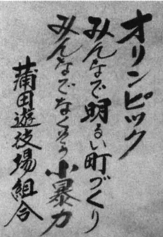 オリンピック
みんなで明るい町づくり
みんなでなくそう小暴力
蒲田遊技場組合